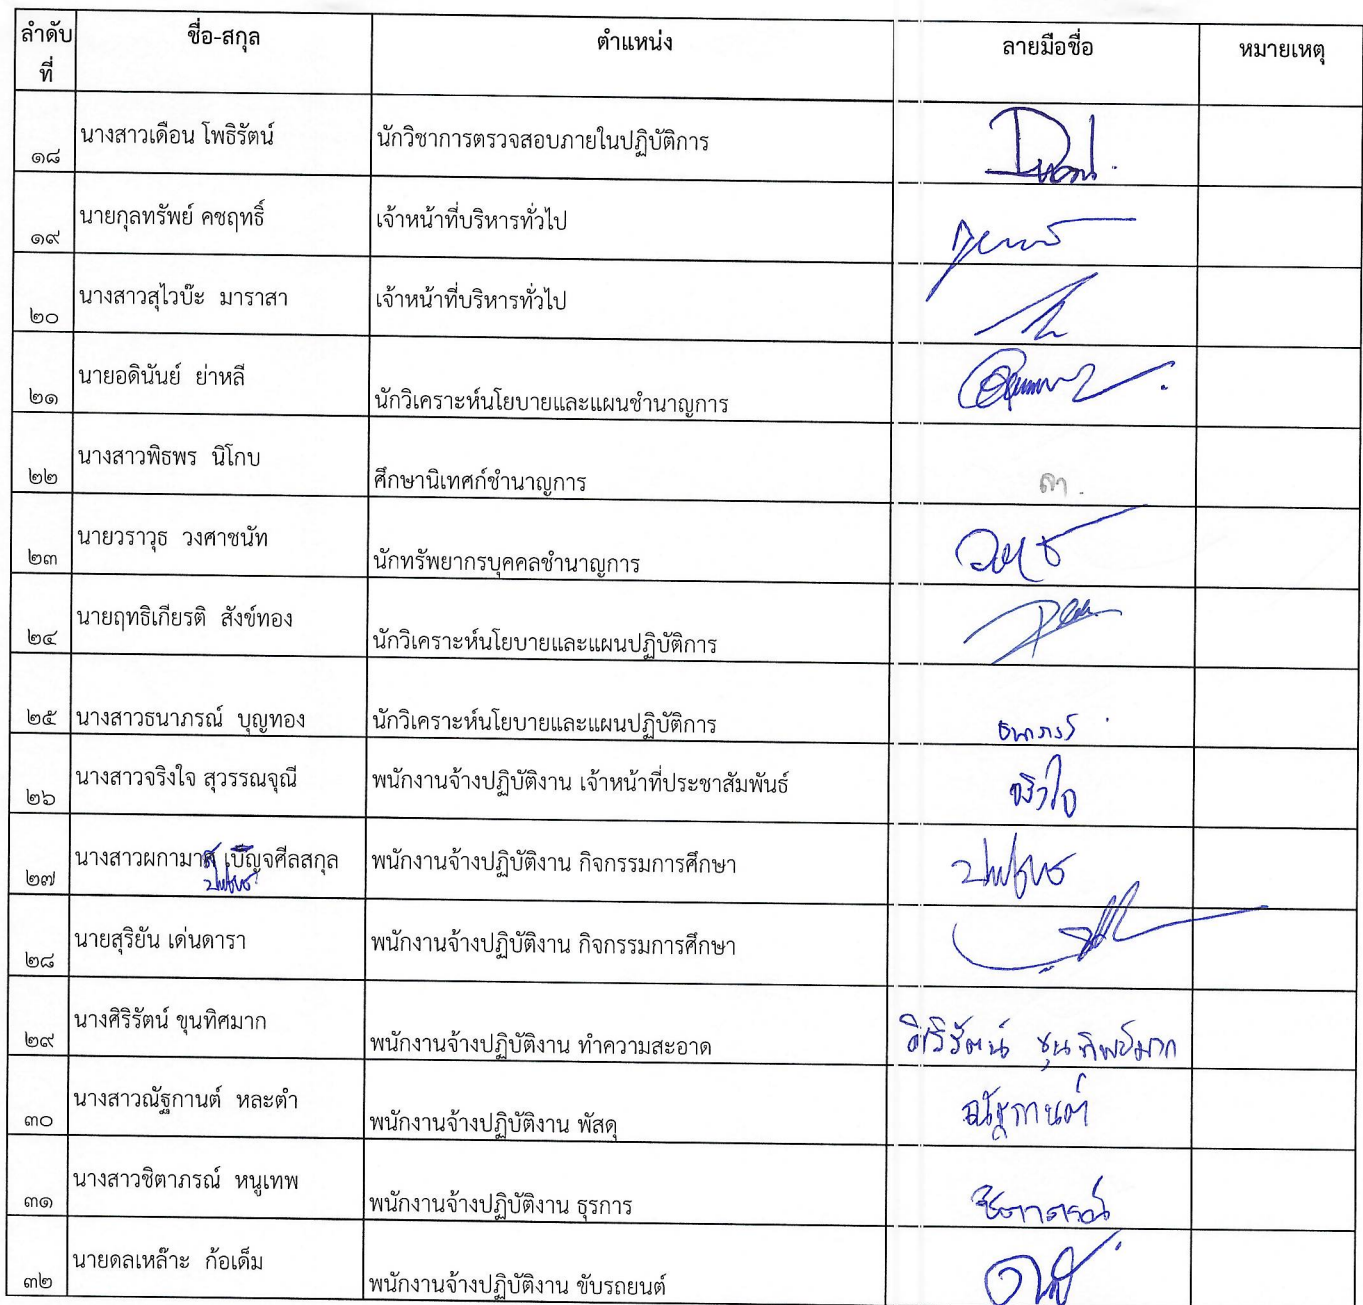 ลำดับที่ ชื่อ-สกุล ตำแหน่ง ลายมือชื่อ หมายเหตุ
๑๘ นางสาวเดือน โพธิรัตน์ นักวิชาการตรวจสอบภายในปฏิบัติการ
๑๙ นายกุลทรัพย์ คชฤทธิ์ เจ้าหน้าที่บริหารทั่วไป
๒๐ นางสาวสุไวบ๊ะ มาราสา เจ้าหน้าที่บริหารทั่วไป
๒๑ นายอดินันย์ ย่าหลี นักวิเคราะห์นโยบายและแผนชำนาญการ
๒๒ นางสาวพิธพร นิโกบ ศึกษานิเทศก์ชำนาญการ ลา.
๒๓ นายวราวุธ วงศาชนัท นักทรัพยากรบุคคลชำนาญการ
๒๔ นายฤทธิเกียรติ สังข์ทอง นักวิเคราะห์นโยบายและแผนปฏิบัติการ
๒๕ นางสาวธนาภรณ์ บุญทอง นักวิเคราะห์นโยบายและแผนปฏิบัติการ ธนาภรณ์
๒๖ นางสาวจริงใจ สุวรรณจุณี พนักงานจ้างปฏิบัติงาน เจ้าหน้าที่ประชาสัมพันธ์ จริงใจ
๒๗ นางสาวผกามาศ เบ็ญจศีลสกุล พนักงานจ้างปฏิบัติงาน กิจกรรมการศึกษา
๒๘ นายสุริยัน เด่นดารา พนักงานจ้างปฏิบัติงาน กิจกรรมการศึกษา
๒๙ นางศิริรัตน์ ขุนทิศมาก พนักงานจ้างปฏิบัติงาน ทำความสะอาด ศิริรัตน์
๓๐ นางสาวณัฐกานต์ หละตำ พนักงานจ้างปฏิบัติงาน พัสดุ ณัฐกานต์
๓๑ นางสาวชิตาภรณ์ หนูเทพ พนักงานจ้างปฏิบัติงาน ธุรการ ชิตาภรณ์
๓๒ นายดลเหล๊าะ ก้อเด็ม พนักงานจ้างปฏิบัติงาน ขับรถยนต์